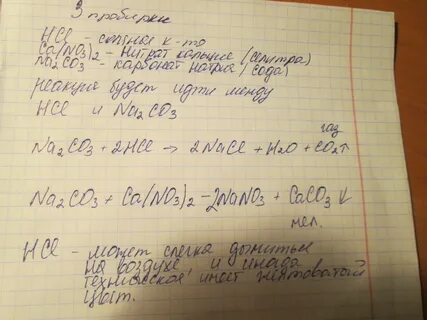 3 пробирки
HCl - соляная к-та
Ca(NO₃)₂ - нитрат кальция (селитра)
Na₂CO₃ - карбонат натрия (сода)
реакция будет идти между
HCl и Na₂CO₃
газ
Na₂CO₃ + 2HCl → 2NaCl + H₂O + CO₂↑
Na₂CO₃ + Ca(NO₃)₂ - 2NaNO₃ + CaCO₃ ↓
мел.
HCl - может слегка дымиться
на воздухе и иногда
техническая имеет желтоватый
цвет.